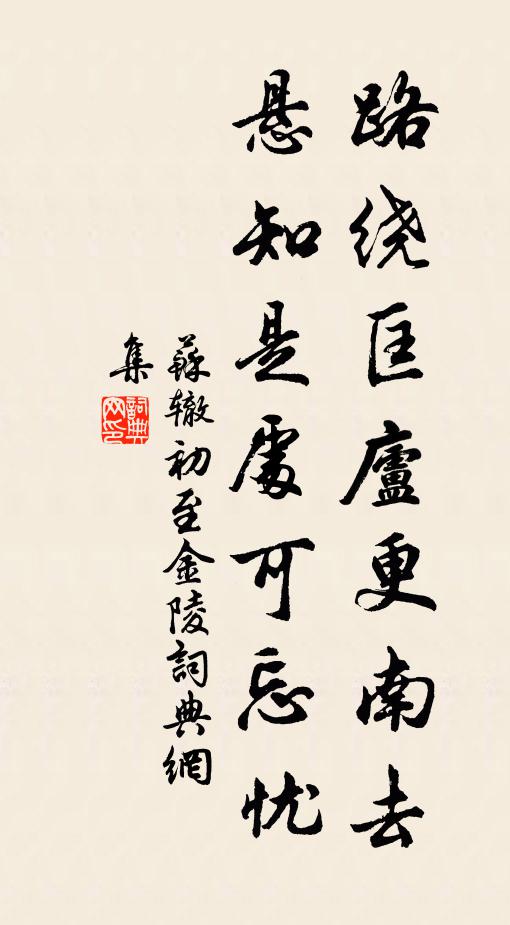 路绕匡廬更南去
悬知是處可忘忧
蘇辙初至金陵詞典網
集
詞典
网印